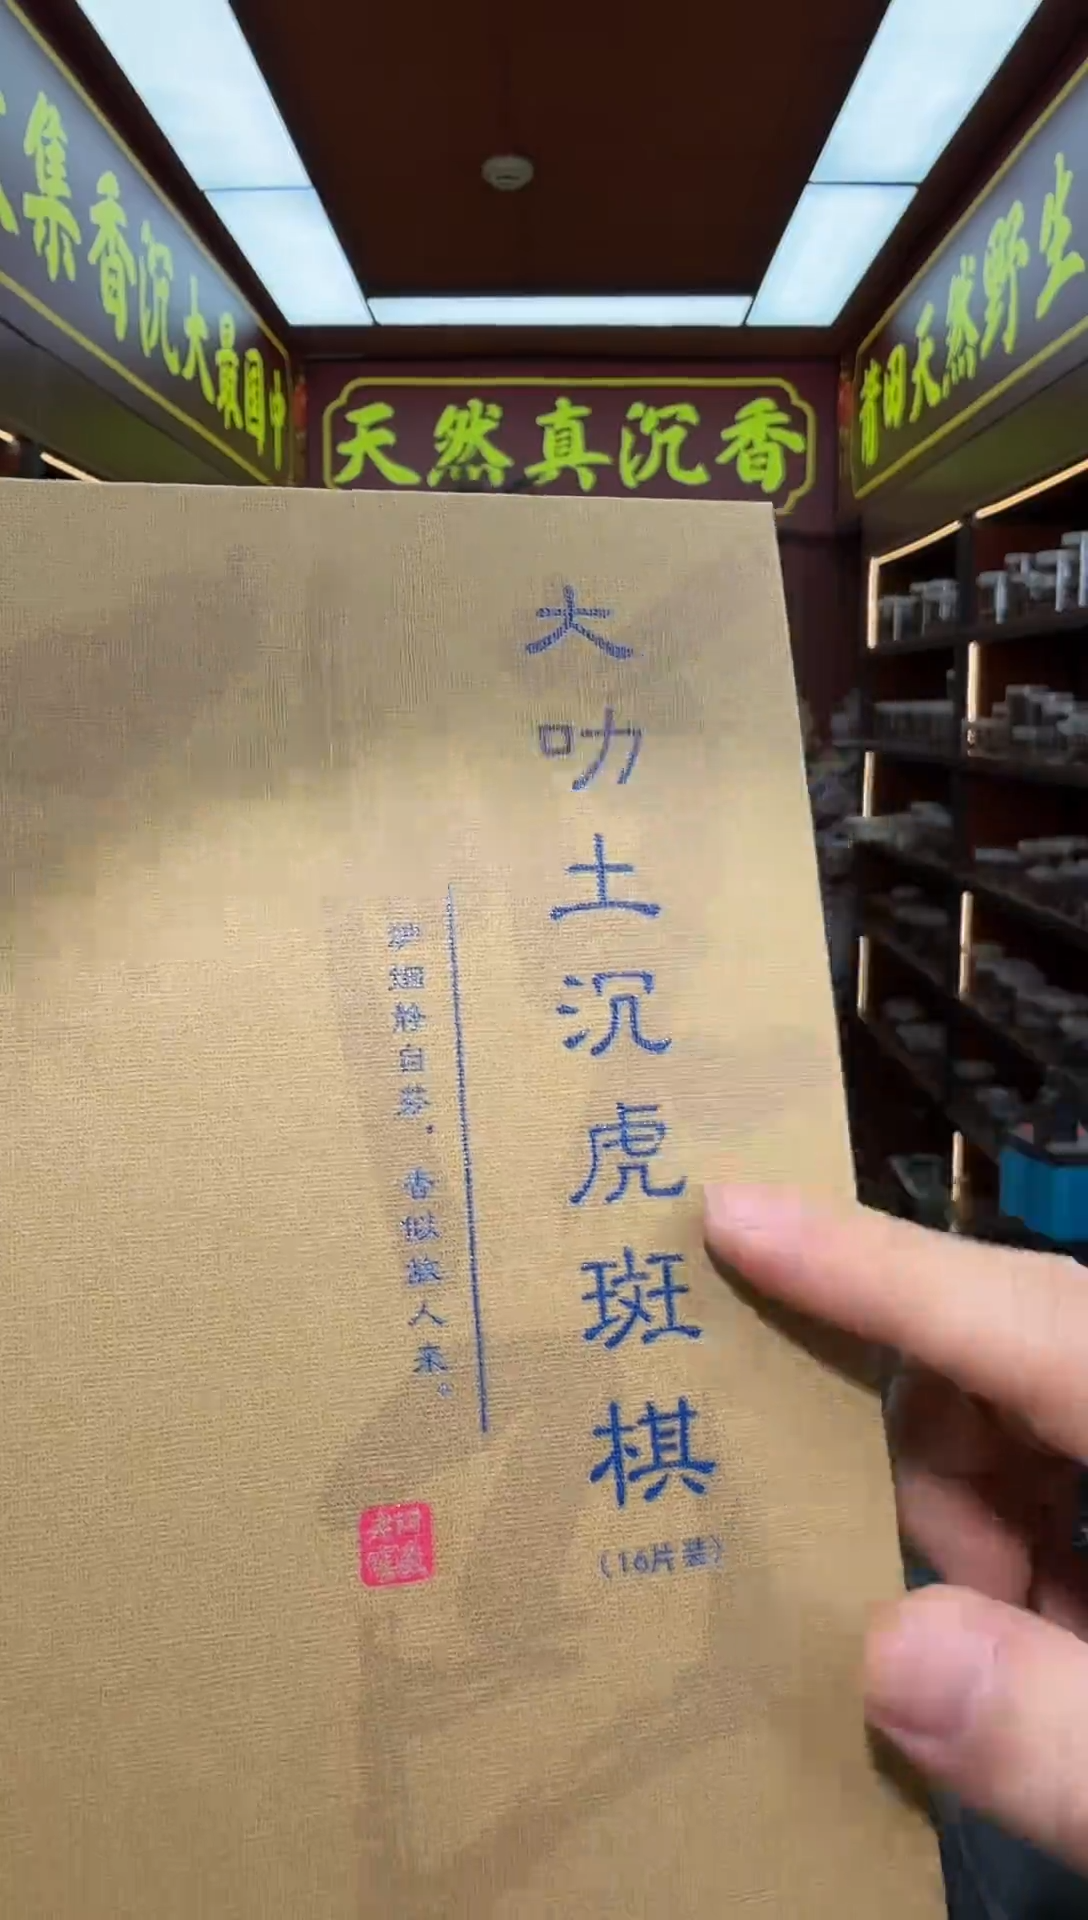 集香沉大最国中
天然真沉香
莆田天然野生
大叻土沉虎斑棋
(16片装)
香似故人来。